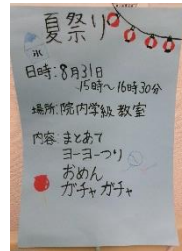 夏祭り
氷
日時:8月31日
15時〜16時30分
場所:院内学級教室
内容:まとあて
ヨーヨーつり
おめん
ガチャガチャ